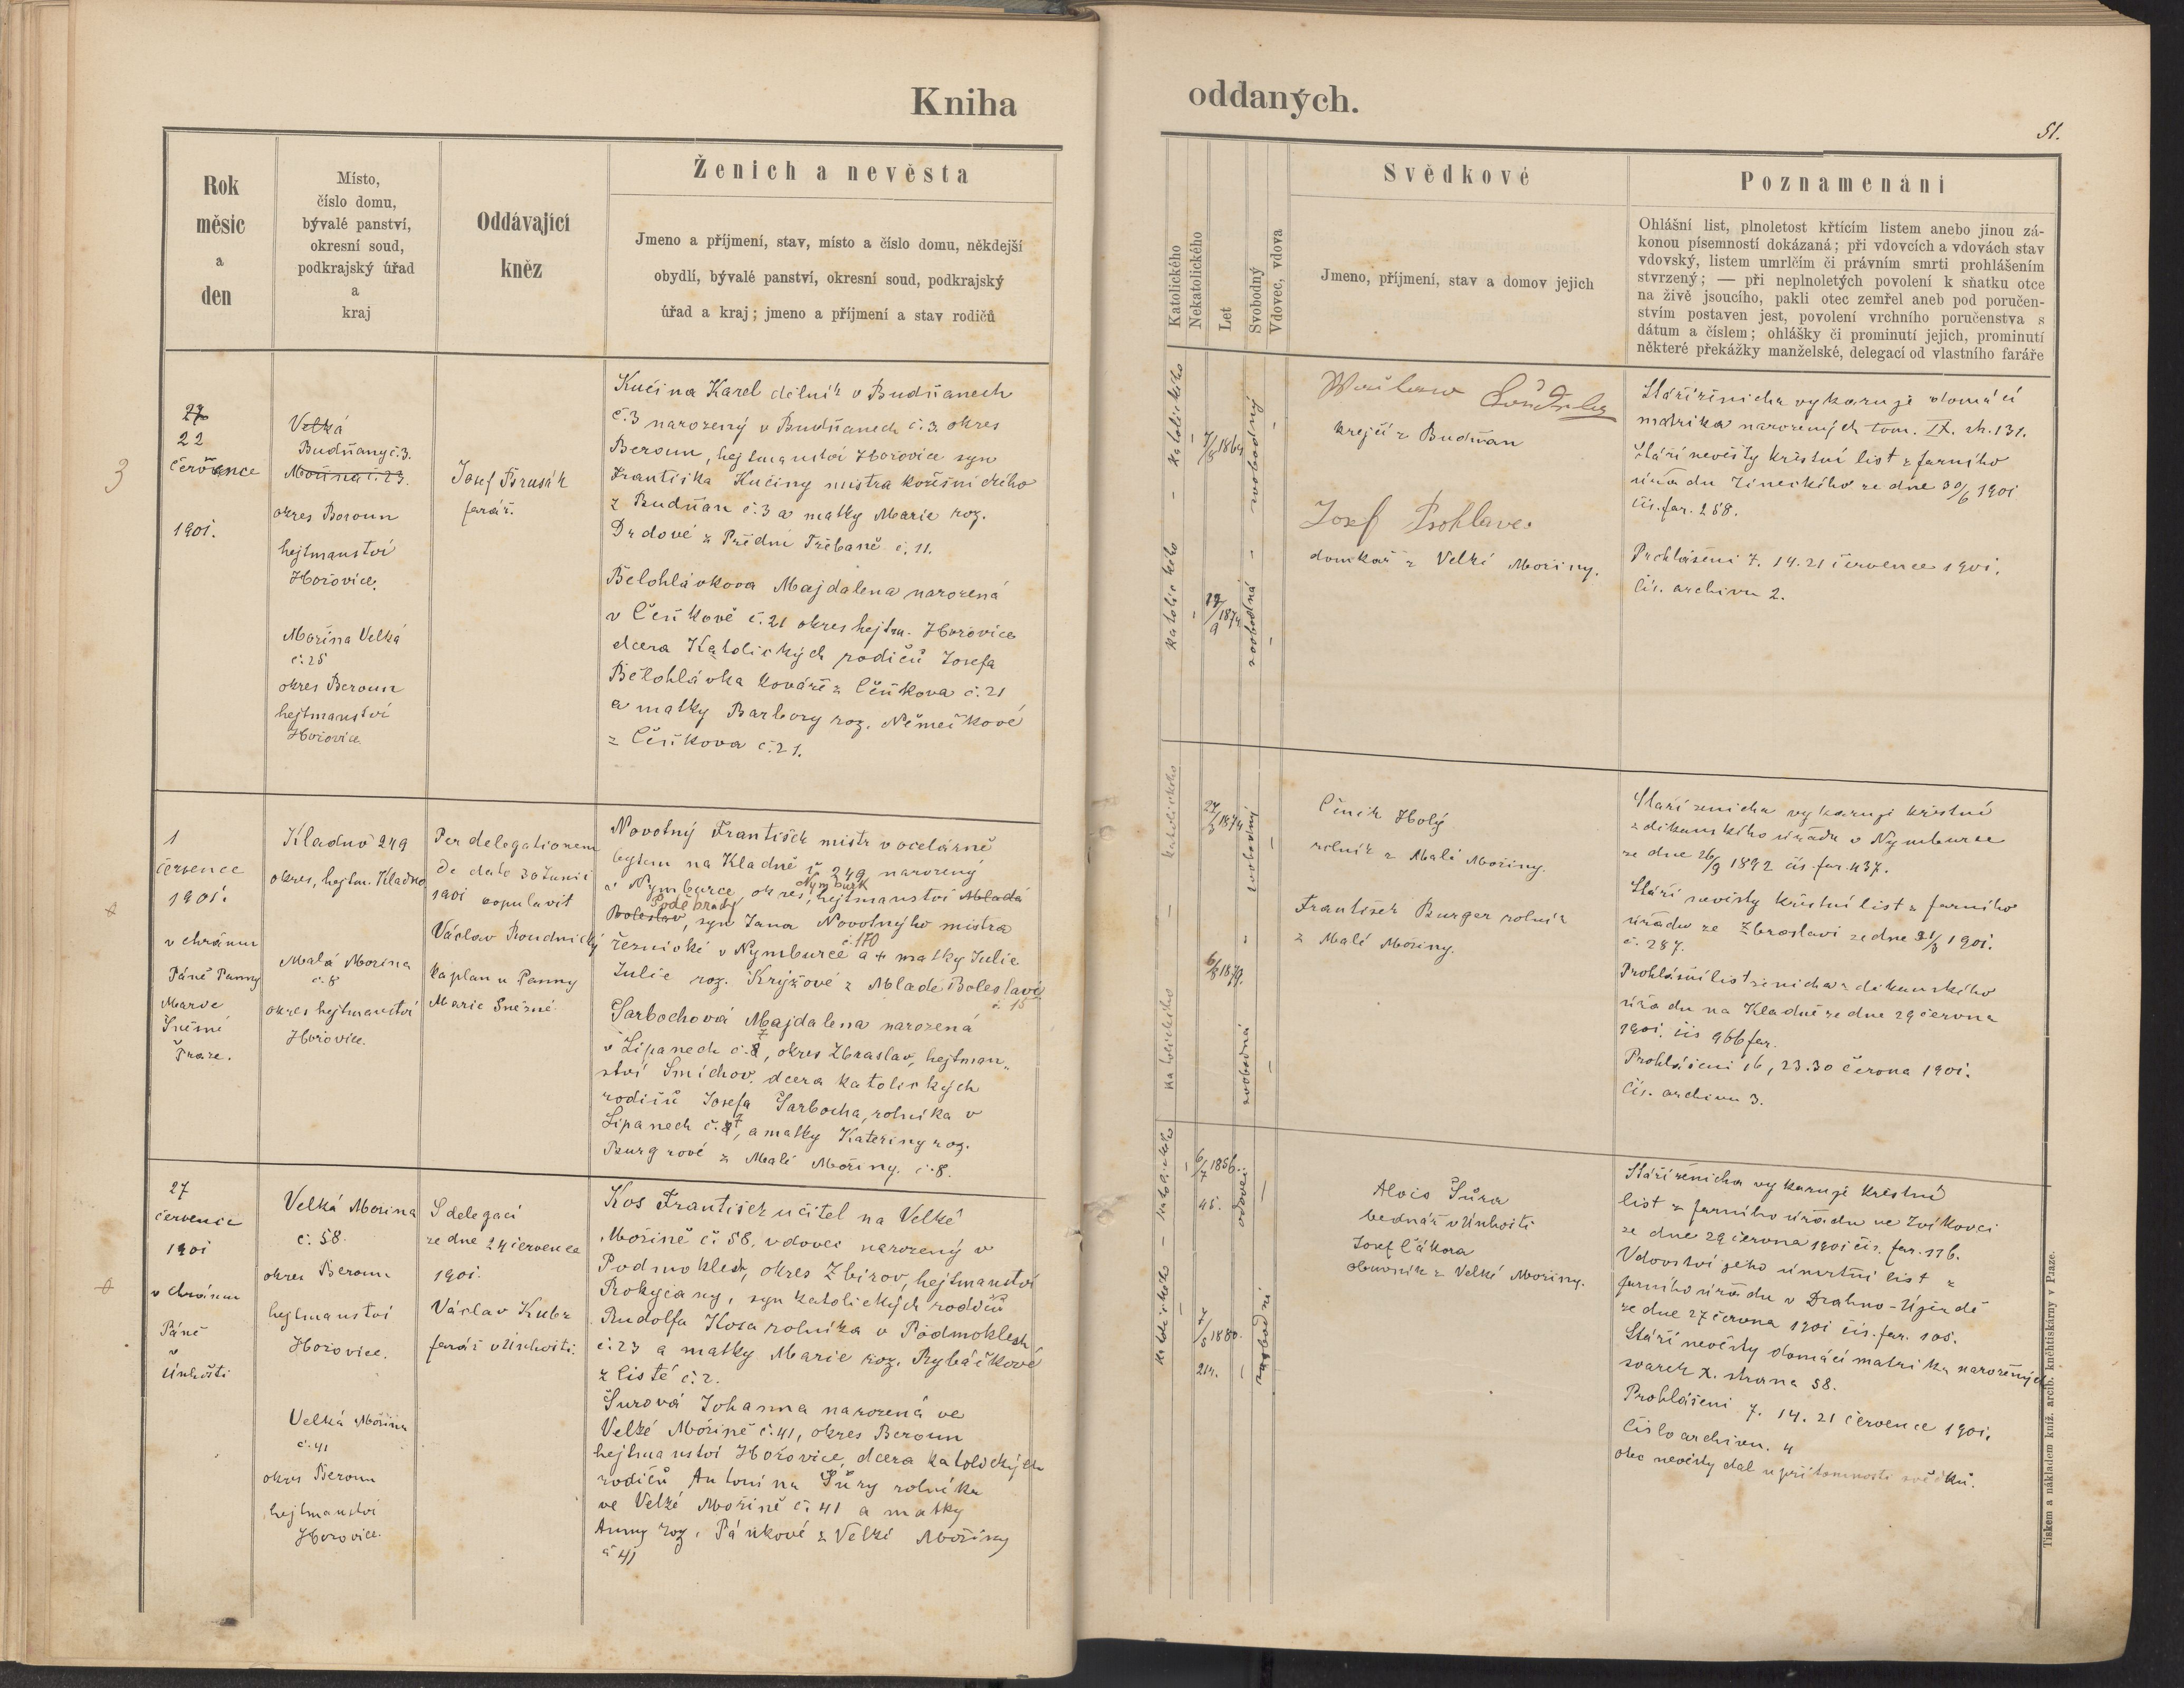 Kniha
oddaných.
51.
Rok
měsíc
a
den
Místo,
číslo domu,
bývalé panství,
okresní soud,
podkrajský úřad
a
kraj
Oddávající
kněz
Ženich a nevěsta
Jmeno a příjmení, stav, místo a číslo domu, někdejší
obydlí, bývalé panství, okresní soud, podkrajský
úřad a kraj; jmeno a příjmení a stav rodičů
Katolického
Nekatolického
Let
Svobodný
Vdovec, vdova
Svědkové
Jmeno, příjmení, stav a domov jejich
Poznamenání
Ohlášní list, plnoletost křtícím listem anebo jinou zá-
konou písemností dokázaná; při vdovcích a vdovách stav
vdovský, listem umrlčím či právním smrti prohlášením
stvrzený; — při neplnoletých povolení k sňatku otce
na živě jsoucího, pakli otec zemřel aneb pod poručen-
stvím postaven jest, povolení vrchního poručenstva s
dátum a číslem; ohlášky či prominutí jejich, prominutí
některé překážky manželské, delegací od vlastního faráře
3
27
22
července
1901.
Velká
Budňany č. 3.
Mořina č. 23.
okres Beroun
hejtmanství
Hořovice.
Mořina Velká
č. 25
okres Beroun
hejtmanství
Hořovice
Josef Brusák
farář.
Kučina Karel dělník v Budňanech
č. 3 narozený v Budňanech č. 3. okres
Beroun, hejtmanství Hořovice syn
Františka Kučiny mistra kožišnického
z Budňan č. 3 a matky Marie roz.
Drdové z Přední Třebaně č. 11.
Bělohlávkova Majdalena narozená
v Čeňkově č. 21 okres hejtm. Hořovice
dcera Katolických rodičů Josefa
Bělohlávka kováře z Čeňkova č. 21
a matky Barbory roz. Němečkové
z Čeňkova č. 21.
katolického
katolického
1864
svobodný
1874
svobodná
krejčí z Budňan
Josef
domkař z Velké Mořiny.
Stáří ženicha vykazuje domácí
matrika narozených tom. IX. str. 131.
Stáří nevěsty křestní list z farního
úřadu ze dne 30/6 1901
čís. far. 258.
Prohlášení 7. 14. 21 července 1901.
čís. archivu 2.
1
července
1901.
v chrámu
Páně Panny
Marie
Sněžné
Praze.
Kladno 249
okres, hejtm. Kladno
Malá Mořina
č. 8
okres hejtmanství
Hořovice.
Per delegationem
de dato 30 Junii
1901 copulavit
Václav Roudnický
kaplan u Panny
Marie Sněžné.
Novotný František mistr v ocelárně
bytem na Kladně č. 249 narozený
v Nymburce, okres, hejtmanství Mladá
Nymburk
Poděbrady
Boleslav, syn Jana Novotného mistra
řeznické v Nymburce č. 170 a + matky Julie
Julie roz. Krýžové z Mladé Boleslavi
č. 15
Sarbochová Majdalena narozená
v Lipanech č. 7, okres Zbraslav, hejtman-
ství Smíchov, dcera katolických
rodičů Josefa Sarbocha, rolníka v
Lipanech č. 7, a matky Kateřiny roz.
Burgrové z Malé Mořiny. č. 8.
katolického
katolického
27/3 1874
svobodný
6/8 1879.
svobodná
Čeněk Holý
rolník z Malé Mořiny.
František Burger rolník
z Malé Mořiny.
Stáří ženicha vykazuje křestní
z děkanského úřadu v Nymburce
ze dne 26/9 1892 čís. far. 437.
Stáří nevěsty křestní list z farního
úřadu ze Zbraslavi ze dne 1901.
č. 287.
Prohlášní list ženicha z děkanského
úřadu na Kladně ze dne 29 června
1901. čís 966 far.
Prohlášení 16, 23. 30 června 1901.
Čís. archivu 3.
27
července
1901
v chrámu
Páně
v
Únhošti
Velká Mořina
č. 58.
okres Beroun
hejtmanství
Hořovice.
Velká Mořina
č. 41
okres Beroun
hejtmanství
Hořovice.
S delegací
ze dne 24 července
1901.
Václav Kubr
farář v Únhošti.
Kos František učitel na Velké
Mořině č. 58, vdovec narozený v
Podmoklech, okres Zbirov, hejtmanství
Rokycany, syn katolických rodičů
Rudolfa Kosa rolníka v Podmoklech
č. 23 a matky Marie roz. Rybáčkové
z Listé č. 2.
Šurová Johanna narozená ve
Velké Mořině č. 41, okres Beroun
hejtmanství Hořovice, dcera katolických
rodičů Antonína Šůry rolníka
ve Velké Mořině č. 41 a matky
Anny roz. Pánkové z Velké Mořiny
č 41
katolického
katolického
6/7 1856.
45.
vdovec
7/5 1880.
21.
svobodná
Alois Šůra
bednář v Únhošti
Josef Čákora
obuvník z Velké Mořiny.
Stáří ženicha vykazuje křestní
list z farního úřadu ve Zvíkovci
ze dne 29 června 1901 čís. far. 116.
Vdovství jeho úmrtní list z
farního úřadu v Drahno-Újezdě
ze dne 27 června 1901 čís. far. 105.
Stáří nevěsty domácí matrika narozených
svazek X. strana 58.
Prohlášení 7. 14. 21 července 1901.
Číslo archivu. 4
otec nevěsty dal u přítomnosti svědků.
Tiskem a nákladem kníž. arcib. knihtiskárny v Praze.